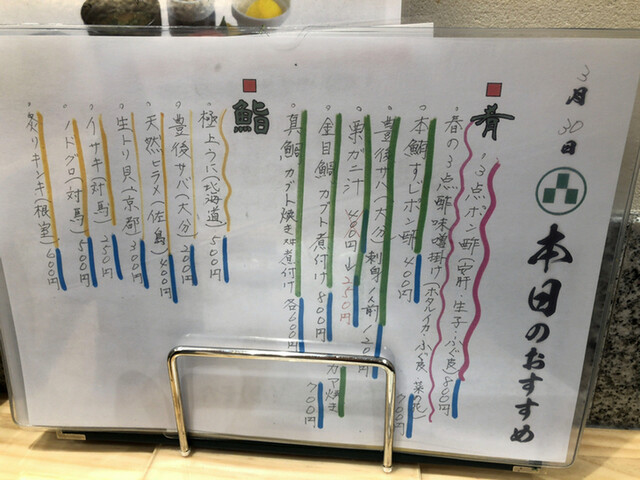 3月30日
本日のおすすめ
肴
・3点ポン酢(安肝・生子・ふぐ皮)800円
・春の3点酢味噌掛け(ホタルイカ・ふぐ皮 菜の花)
700円
・本鮪すじポン酢 400円
・豊後サバ(大分)刺身1人前1200円
・栗ガニ汁 400円 250円
・金目鯛カブト煮付け 800円
カマ焼き
・真鯛カブト焼き 煮付け 各600円
700円
鮨
・極上うに(北海道)500円
・豊後サバ(大分)
・天然ヒラメ(佐島)400円
・生トリ貝(京都)300円
・イサキ(対馬)250円
・ノドグロ(対馬)500円
・炙りキンキ(根室)600円